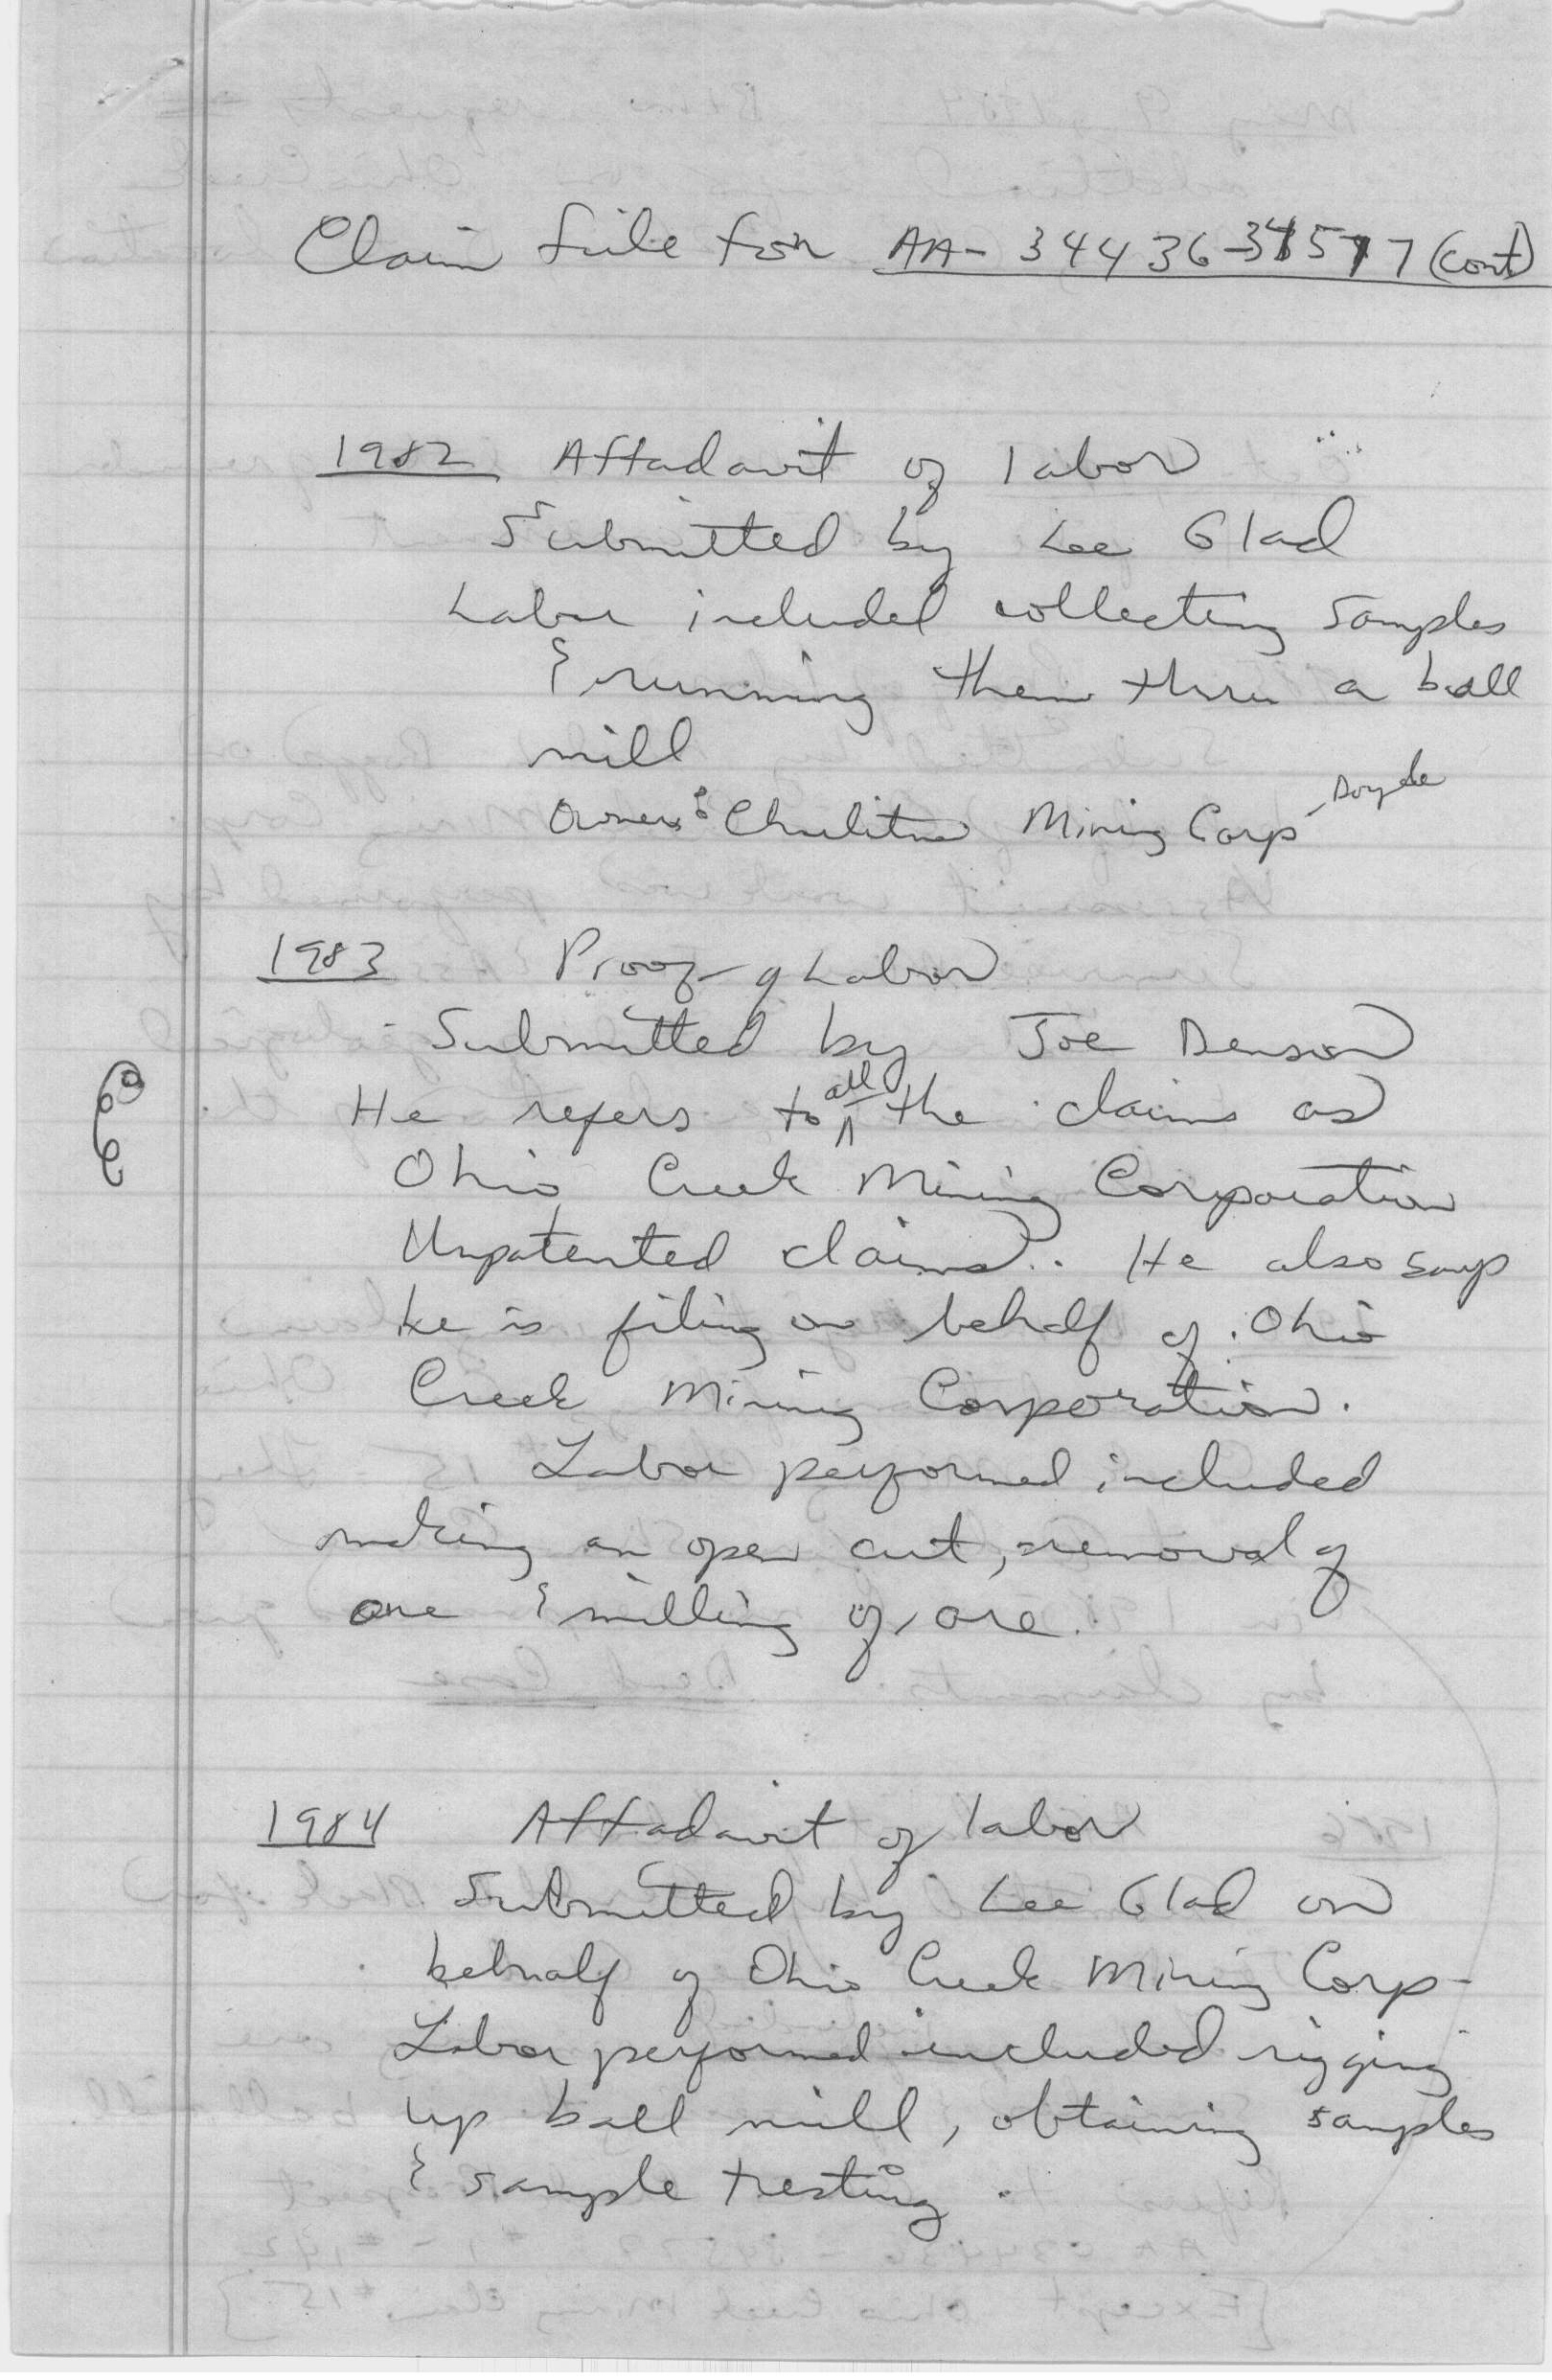 Claim file for AA- 34436-34577 (cont)
1982 Affadavit of labor
Submitted by Lee Glad
Labor included collecting samples
& running them thru a ball
mill
Owner: Chulitna Mining Corp - Doyle
1983 Proof of Labor
Submitted by Joe Denson
He refers to all the claims as
Ohio Creek Mining Corporation
Unpatented claims. He also says
he is filing on behalf of Ohio
Creek Mining Corporation.
Labor performed included
making an open cut, removal of
ore & milling of ore.
1984 Affadavit of labor
Submitted by Lee Glad on
behalf of Ohio Creek Mining Corp-
Labor performed included rigging
up ball mill, obtaining samples
& sample testing.